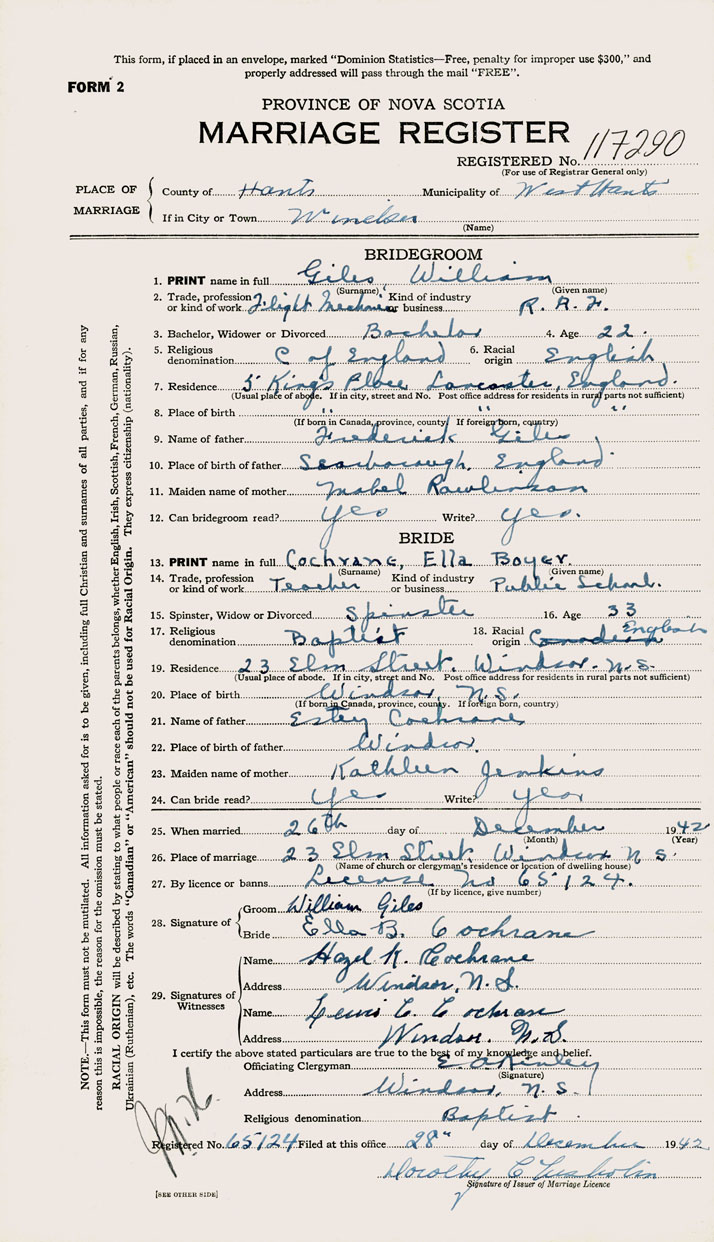 This form, if placed in an envelope, marked "Dominion Statistics—Free, penalty for improper use $300," and
properly addressed will pass through the mail "FREE".
FORM 2
PROVINCE OF NOVA SCOTIA
MARRIAGE REGISTER
REGISTERED No. 117290
(For use of Registrar General only)
PLACE OF MARRIAGE
County of Hants Municipality of West Hants
If in City or Town Windsor
(Name)
BRIDEGROOM
1. PRINT name in full Giles William
(Surname) (Given name)
2. Trade, profession or kind of work Flight Mechanic Kind of industry or business R.A.F.
3. Bachelor, Widower or Divorced Bachelor 4. Age 22.
5. Religious denomination C of England 6. Racial origin English
7. Residence 5 King's Place Lancaster, England.
(Usual place of abode. If in city, street and No. Post office address for residents in rural parts not sufficient)
8. Place of birth " " "
(If born in Canada, province, county. If foreign born, country)
9. Name of father Frederick Giles
10. Place of birth of father Scarborough, England
11. Maiden name of mother Mabel Rawlinson
12. Can bridegroom read? yes Write? yes.
BRIDE
13. PRINT name in full Cochrane, Ella Boyer.
(Surname) (Given name)
14. Trade, profession or kind of work Teacher Kind of industry or business Public School.
15. Spinster, Widow or Divorced Spinster 16. Age 33
17. Religious denomination Baptist 18. Racial origin Canadian English
19. Residence 23 Elm Street, Windsor. N.S.
(Usual place of abode. If in city, street and No. Post office address for residents in rural parts not sufficient)
20. Place of birth Windsor, N.S.
(If born in Canada, province, county. If foreign born, country)
21. Name of father Estey Cochrane
22. Place of birth of father Windsor.
23. Maiden name of mother Kathleen Jenkins
24. Can bride read? yes Write? yes
25. When married 26th day of December 1942
(Month) (Year)
26. Place of marriage 23 Elm Street Windsor N S.
(Name of church or clergyman's residence or location of dwelling house)
27. By licence or banns License No 65124.
(If by licence, give number)
28. Signature of
Groom William Giles
Bride Ella B. Cochrane
29. Signatures of Witnesses
Name Hazel K. Cochrane
Address Windsor, N.S.
Name Lewis E. Cochran
Address Windsor. N.S.
I certify the above stated particulars are true to the best of my knowledge and belief.
Officiating Clergyman E A Kinley
(Signature)
Address Windsor, N.S.
Religious denomination Baptist.
Registered No. 65124 Filed at this office 28" day of December 1942
Dorothy C Chisholm
Signature of Issuer of Marriage Licence
[SEE OTHER SIDE]
NOTE.—This form must not be mutilated. All information asked for is to be given, including full Christian and surnames of all parties, and if for any
reason this is impossible, the reason for the omission must be stated.
RACIAL ORIGIN will be described by stating to what people or race each of the parents belongs, whether English, Irish, Scottish, French, German, Russian,
Ukrainian (Ruthenian), etc. The words "Canadian" or "American" should not be used for Racial Origin. They express citizenship (nationality).